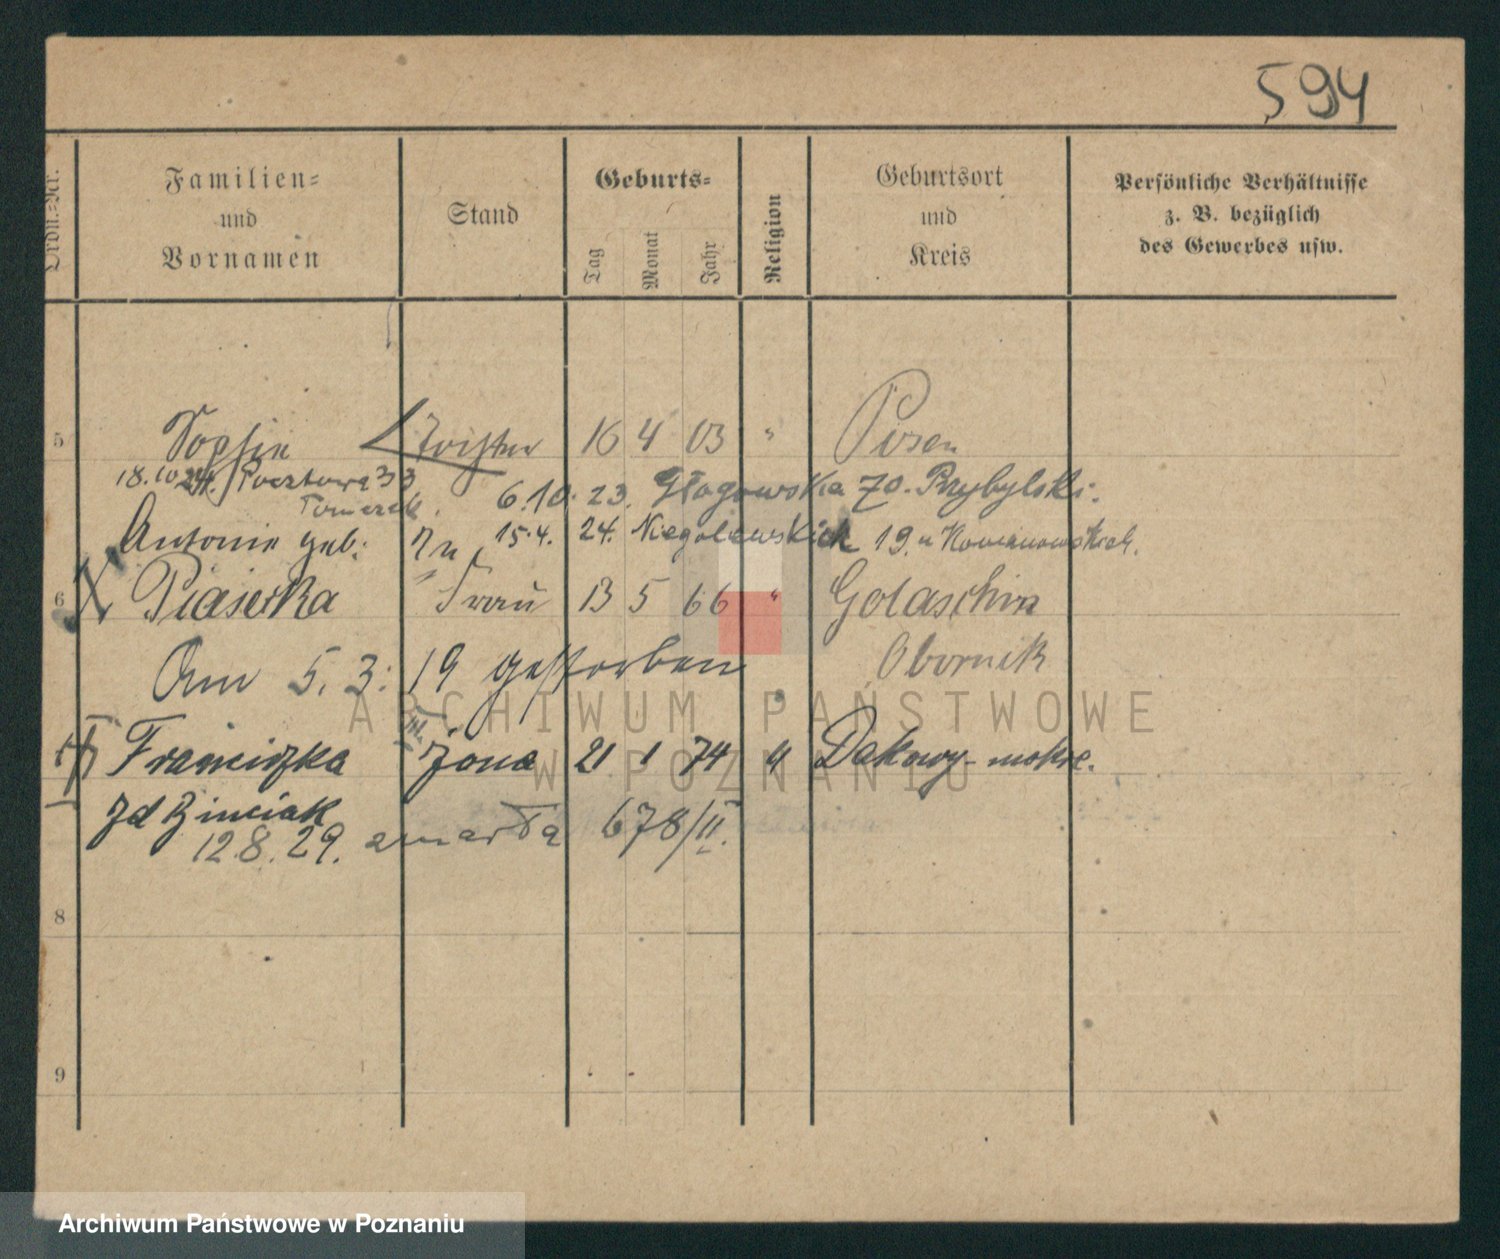 594
Ordn.-Nr.
Familien-
und
Vornamen
Stand
Geburts-
Tag
Monat
Jahr
Religion
Geburtsort
und
Kreis
Persönliche Verhältnisse
z. B. bezüglich
des Gewerbes usw.
5 Sophie Tochter 16 4 03 " Posen
18.10.24. Pocztowa 33
Tomczak. 6.10.23. Głogowska 70. Przybylski.
Antonie geb. 15.4. 24. Niegolewskich 19. u
6 Piasecka Frau 13 5 66 " Golaschin
Obornik
Am 5.3.19 gestorben
Franciszka żona 21 1 74 " Dakowy-mokre.
zd Binciak
12.8.29. zmarła 678/II.
8
9
ARCHIWUM PAŃSTWOWE
W POZNANIU
Archiwum Państwowe w Poznaniu